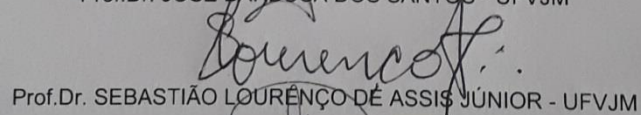 Lourenço Jr.
Prof.Dr. SEBASTIÃO LOURENÇO DE ASSIS JÚNIOR - UFVJM